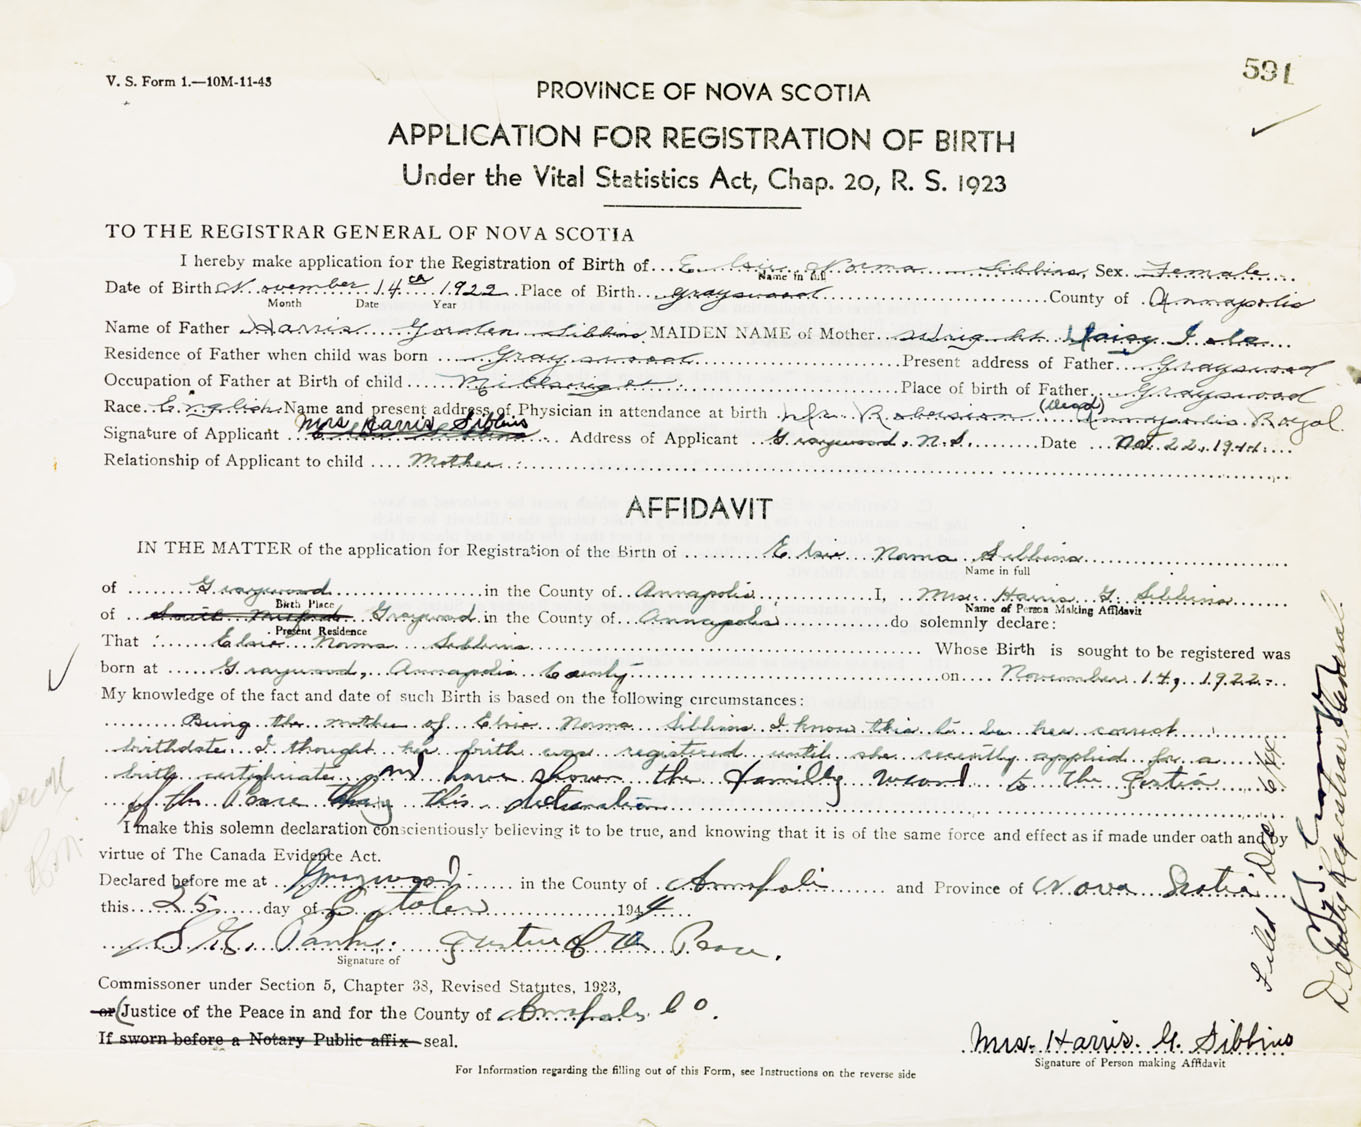 V. S. Form 1.—10M-11-43
591
PROVINCE OF NOVA SCOTIA
APPLICATION FOR REGISTRATION OF BIRTH
Under the Vital Statistics Act, Chap. 20, R. S. 1923
TO THE REGISTRAR GENERAL OF NOVA SCOTIA
I hereby make application for the Registration of Birth of Elsie Norma Sibbins, Sex Female
Name in full
Date of Birth November 14th 1922 Place of Birth Grayswood County of Annapolis
Month Date Year
Name of Father Harris Gorden Sibbins MAIDEN NAME of Mother Wright Daisy I
Residence of Father when child was born Grayswood Present address of Father Grayswood
Occupation of Father at Birth of child Place of birth of Father Grayswood
Race English Name and present address of Physician in attendance at birth Dr. Roberson (Dead) Annapolis Royal
Signature of Applicant Mrs Harris Sibbins Address of Applicant Graywood, N.S. Date 22, 1944
Relationship of Applicant to child Mother
AFFIDAVIT
IN THE MATTER of the application for Registration of the Birth of Elsie Norma Sibbins
Name in full
of Graywood in the County of Annapolis I, Mrs. Harris G. Sibbins
Birth Place Name of Person Making Affidavit
of South Milford Graywood in the County of Annapolis do solemnly declare:
Present Residence
That Elsie Norma Sibbins Whose Birth is sought to be registered was
born at Graywood, Annapolis County on November 14, 1922
My knowledge of the fact and date of such Birth is based on the following circumstances:
Being the mother of Elsie Norma Sibbins I know this to be her correct
birthdate. I thought her birth was registered until she recently applied for a
birth certificate and have shown the family record to the Justice
of the Peace this declaration
I make this solemn declaration conscientiously believing it to be true, and knowing that it is of the same force and effect as if made under oath and by
virtue of The Canada Evidence Act.
Declared before me at Graywood in the County of Annapolis and Province of Nova Scotia
this 25 day of October 1944
Justice of the Peace.
Signature of
Commissoner under Section 5, Chapter 38, Revised Statutes, 1923,
or (Justice of the Peace in and for the County of Annapolis Co.
If sworn before a Notary Public affix seal.
Mrs. Harris. G. Sibbins
Signature of Person making Affidavit
For Information regarding the filling out of this Form, see Instructions on the reverse side
Filed Dec 6/44
Deputy Registrar General